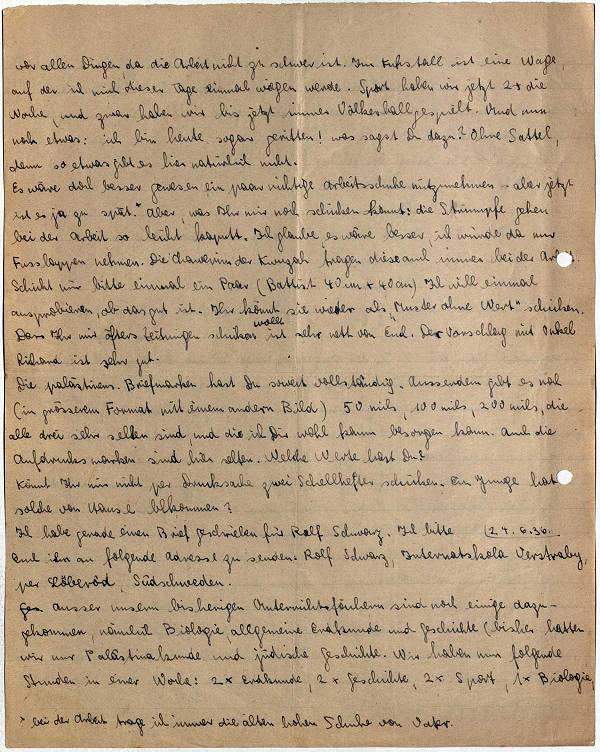 vor allen Dingen, da die Arbeit nicht zu schwer ist. Im Kuhstall ist eine Wage,
auf der ich mich dieser Tage einmal wiegen werde. Sport haben wir jetzt 2x die
Woche, und zwar haben wir bis jetzt immer Völkerball gespielt. Und nun
noch etwas: ich bin heute sogar geritten! Was sagst Du dazu? Ohne Sattel,
denn so etwas gibt es hier natürlich nicht.
Es wäre doch besser gewesen ein paar richtige Arbeitsschuhe mitzunehmen - aber jetzt
ist es ja zu spät.ˣ Aber, was Ihr mir noch schicken könnt: die Strümpfe gehen
bei der Arbeit so leicht kaputt. Ich glaube es wäre besser, ich würde da nur
Fusslappen nehmen. Die Chawerim der Kwuzah tragen diese auch immer bei der Arbeit.
Schickt mir bitte einmal ein Paar (Battist 40 cm x 40 cm) Ich will einmal
ausprobieren, ob das gut ist. Ihr könnt sie wieder als „Muster ohne Wert" schicken.
Dass Ihr mir öfters Zeitungen schicken wollt ist sehr nett von Euch. Der Vorschlag mit Onkel
Richard ist sehr gut.
Die palästinens. Briefmarken hast Du soweit vollständig. Ausserdem gibt es noch
(in grösserem Format mit einem andern Bild) 50 mils, 100 mils, 200 mils, die
alle drei sehr selten sind und die ich Dir wohl kaum besorgen kann. Auch die
Aufdrucksmarken sind hier selten. Welche Werte hast Du?
Könnt Ihr mir nicht per Drucksache zwei Schellhefter schicken. Ein Junge hat
solche von Hause bekommen?
Ich habe gerade einen Brief geschrieben für Rolf Schwarz. Ich bitte (24.6.36.
Euch ihn an folgende Adresse zu senden: Rolf Schwarz, Internatskola Verstraby,
per Löberöd, Südschweden.
Ausser unsern bisherigen Unterrichtsfächern sind noch einige dazu-
gekommen, nämlich Biologie, allgemeine Erdkunde und Geschichte (bisher hatten
wir nur Palästinakunde und jüdische Geschichte. Wir haben nun folgende
Stunden in einer Woche: 2x Erdkunde, 2x Geschichte, 2x Sport, 1x Biologie,
x bei der Arbeit trage ich immer die alten hohen Schuhe von